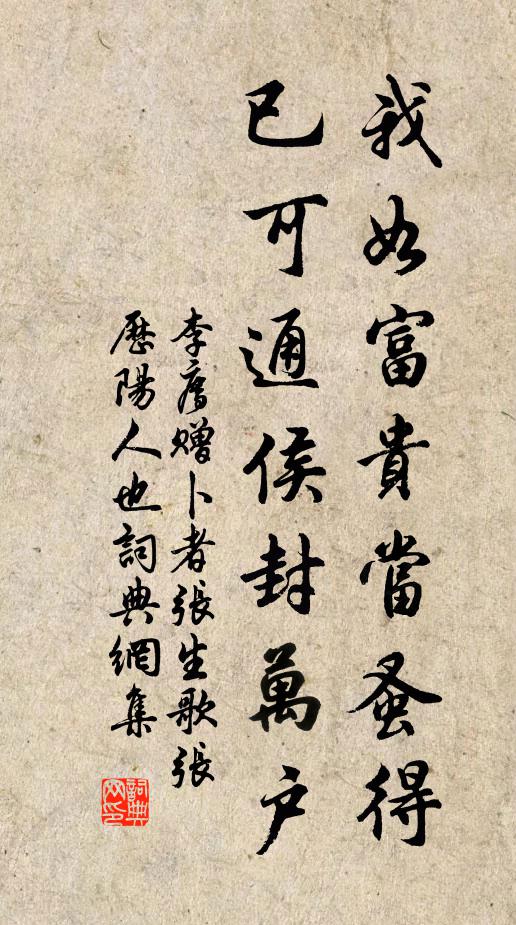 我如富貴當蚤得
已可通侯封萬戶
李廌贈卜者張生歌張
歷陽人也詞典網集
詞典網印